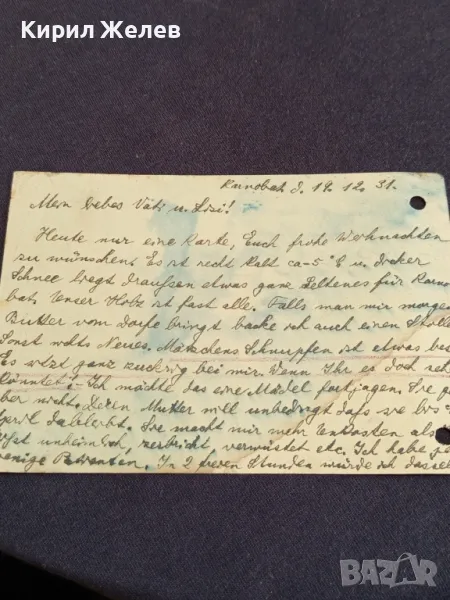 Кирил Желев
Karnobat d. 19. 12. 31.
Mein liebes Väti u. Lisi!
Heute nur eine Karte, Euch frohe Weihnachten
zu wünschen. Es ist recht kalt ca -5° C u. dicker
Schnee liegt draußen etwas ganz Seltenes für Karno
bat. Unser Holz ist fast alle. Falls man mir morgen
Butter vom Dorfe bringt backe ich auch einen Stolle
Sonst nichts Neues. Mätzchens Schnupfen ist etwas be
Es sitzt ganz ruhig bei mir. Wenn Ihr es doch seh
könntet. Ich möchte das eine Mädel fortjagen. Sie g
ber nicht. Deren Mutter will unbedingt dass sie bis
April dableibt. Sie macht mir mehr Unkosten als
ißt unheimlich, zerbricht, verwüstet etc. Ich habe
wenige Patienten. In 2 freien Stunden würde ich dasse
BAZAR.BG